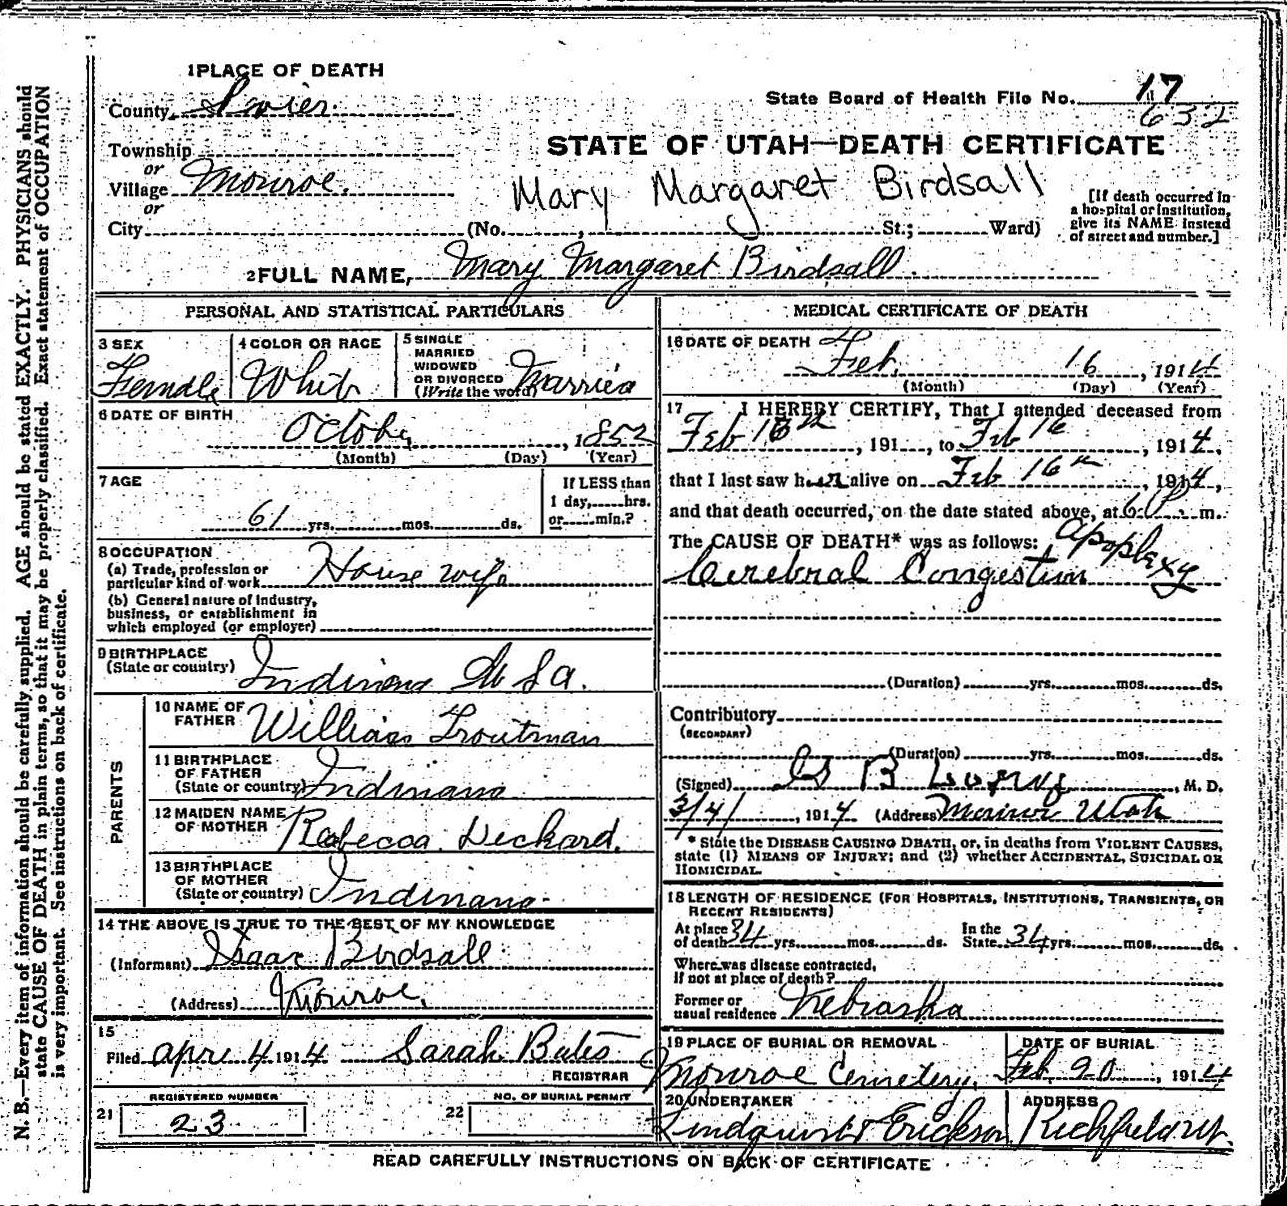 1 PLACE OF DEATH
County Sevier
State Board of Health File No. 17
632
Township
or
Village Monroe.
or
City (No. , St.; Ward)
STATE OF UTAH—DEATH CERTIFICATE
Mary Margaret Birdsall
[If death occurred in
a hospital or institution,
give its NAME instead
of street and number.]
2 FULL NAME, Mary Margaret Birdsall.
PERSONAL AND STATISTICAL PARTICULARS
3 SEX
Female
4 COLOR OR RACE
White
5 SINGLE
MARRIED
WIDOWED
OR DIVORCED
(Write the word) Married
6 DATE OF BIRTH
October , 1852
(Month) (Day) (Year)
7 AGE
61 yrs. mos. ds.
If LESS than
1 day, hrs.
or min.?
8 OCCUPATION
(a) Trade, profession or
particular kind of work House wife
(b) General nature of industry,
business, or establishment in
which employed (or employer)
9 BIRTHPLACE
(State or country) Indiana U S A.
PARENTS
10 NAME OF
FATHER William Troutman
11 BIRTHPLACE
OF FATHER
(State or country) Indiana
12 MAIDEN NAME
OF MOTHER Rebecca Deckard.
13 BIRTHPLACE
OF MOTHER
(State or country) Indiana
14 THE ABOVE IS TRUE TO THE BEST OF MY KNOWLEDGE
(Informant) Isaac Birdsall
(Address) Monroe.
15
Filed Apr 4 1914 Sarah Bates
REGISTRAR
21 REGISTERED NUMBER
23
22 NO. OF BURIAL PERMIT
MEDICAL CERTIFICATE OF DEATH
16 DATE OF DEATH
Feb. 16 , 1914
(Month) (Day) (Year)
17 I HEREBY CERTIFY, That I attended deceased from
Feb 16th , 191 , to Feb 16 , 1914,
that I last saw her alive on Feb 16th , 1914,
and that death occurred, on the date stated above, at 6 P. m.
The CAUSE OF DEATH* was as follows: Apoplexy
Cerebral Congestion
(Duration) yrs. mos. ds.
Contributory
(SECONDARY)
(Duration) yrs. mos. ds.
(Signed) , M. D.
3/4/ , 1914 (Address) Utah
* State the DISEASE CAUSING DEATH, or, in deaths from VIOLENT CAUSES,
state (1) MEANS OF INJURY; and (2) whether ACCIDENTAL, SUICIDAL OR
HOMICIDAL.
18 LENGTH OF RESIDENCE (FOR HOSPITALS, INSTITUTIONS, TRANSIENTS, OR
RECENT RESIDENTS)
At place
of death 34 yrs. mos. ds. In the
State 34 yrs. mos. ds.
Where was disease contracted,
if not at place of death?
Former or
usual residence Nebraska
19 PLACE OF BURIAL OR REMOVAL
Monroe Cemetery.
DATE OF BURIAL
Feb. 20 , 1914
20 UNDERTAKER
Lindquist & Erickson
ADDRESS
Richfield Ut.
READ CAREFULLY INSTRUCTIONS ON BACK OF CERTIFICATE
N. B.—Every item of information should be carefully supplied. AGE should be stated EXACTLY. PHYSICIANS should
state CAUSE OF DEATH in plain terms, so that it may be properly classified. Exact statement of OCCUPATION
is very important. See instructions on back of certificate.